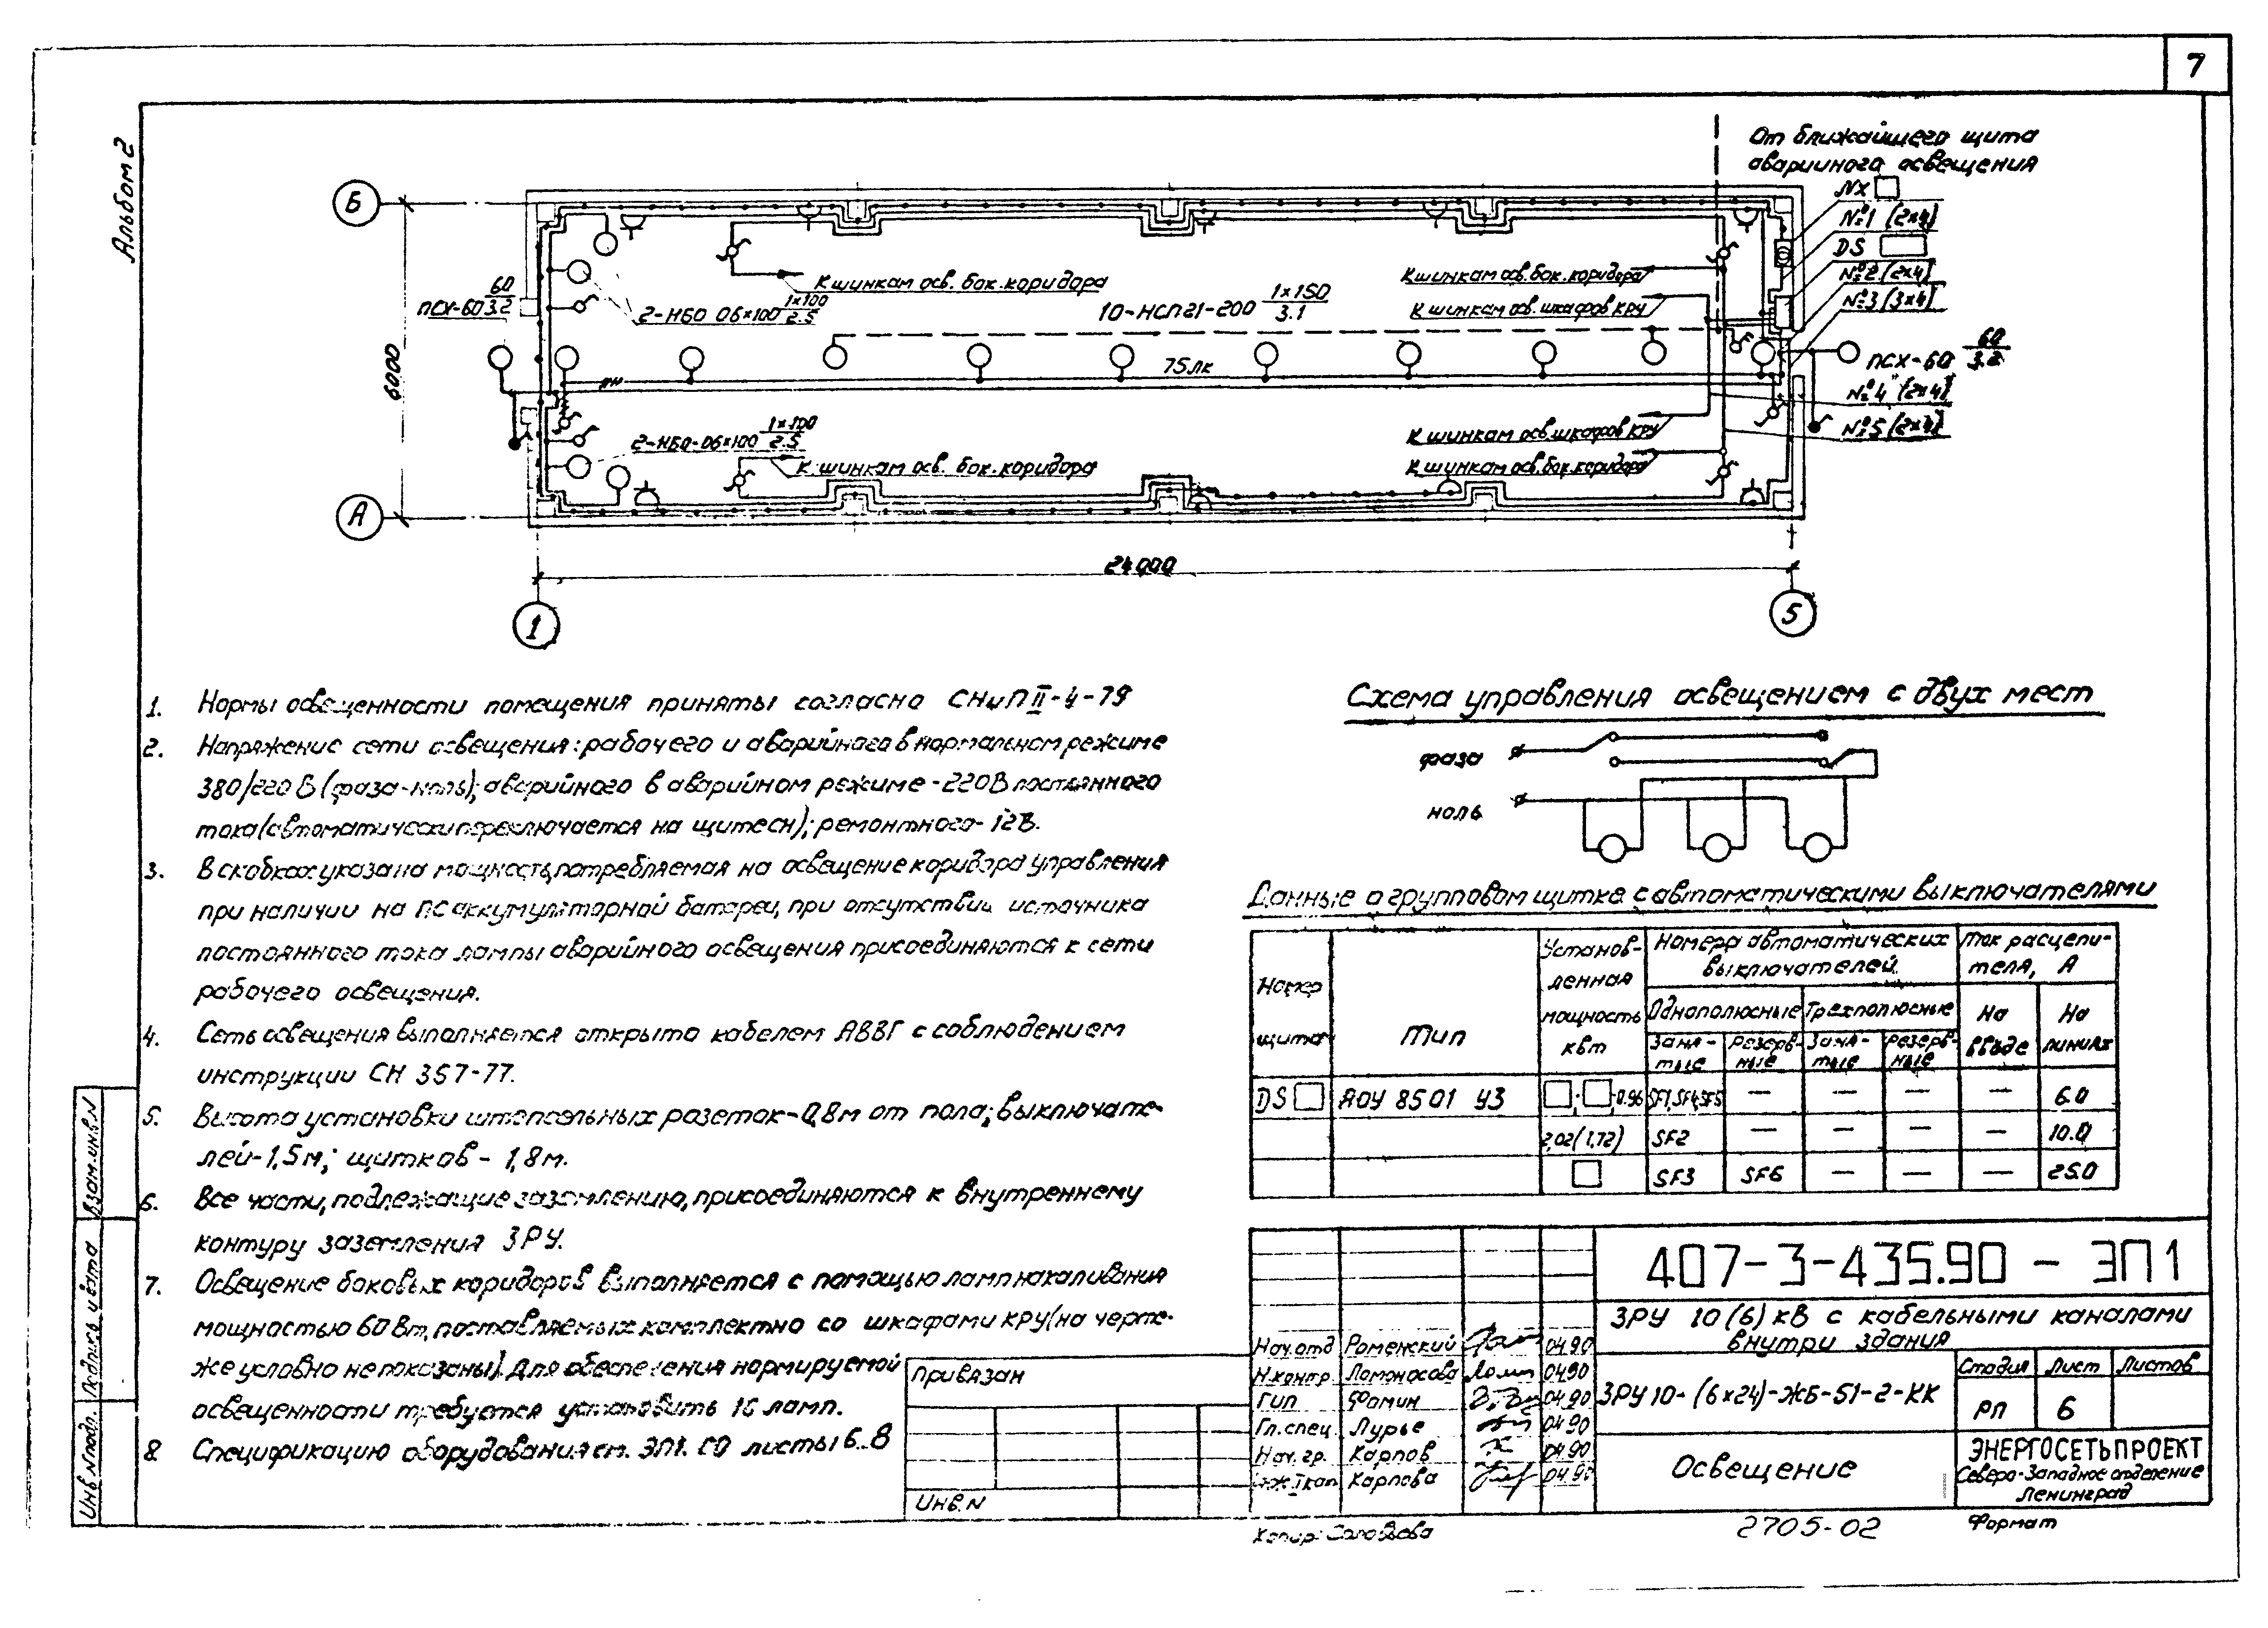 7
Альбом 2
От ближайшего щита
аварийного освещения
NX
№1 (2×4)
DS
№2 (2×4)
№3 (3×4)
ПСХ-60 60/3.2
№4 (2×4)
№5 (2×4)
Б
А
6000
ПСХ-60 60/3.2
2-НБО 06×100 1×100/2.5
К шинкам осв. бок. коридора
10-НСП21-200 1×150/3.1
К шинкам осв. бок. коридора
К шинкам осв. шкафов КРУ
75лк
2-НБО-06×100 1×100/2.5
К шинкам осв. бок. коридора
К шинкам осв. шкафов КРУ
К шинкам осв. бок. коридора
24000
1
5
1. Нормы освещенности помещения приняты согласно СНиП II-4-79
2. Напряжение сети освещения: рабочего и аварийного в нормальном режиме
380/220 В (фаза-ноль); аварийного в аварийном режиме - 220В постоянного
тока (автоматически переключается на щите сн); ремонтного - 12В.
3. В скобках указана мощность, потребляемая на освещение коридора управления
при наличии на ПС аккумуляторной батареи, при отсутствии источника
постоянного тока лампы аварийного освещения присоединяются к сети
рабочего освещения.
4. Сеть освещения выполняется открыто кабелем АВВГ с соблюдением
инструкции СН 357-77.
5. Высота установки штепсельных розеток - 0,8м от пола; выключате-
лей - 1,5м; щитков - 1,8м.
6. Все части, подлежащие заземлению, присоединяются к внутреннему
контуру заземления ЗРУ.
7. Освещение боковых коридоров выполняется с помощью ламп накаливания
мощностью 60 Вт, поставляемых комплектно со шкафами КРУ (на черте-
же условно не показаны). Для обеспечения нормируемой
освещенности требуется установить 16 ламп.
8 Спецификацию оборудования см. ЭП1. СО листы 6..8
Схема управления освещением с двух мест
фаза
ноль
Данные о групповом щитке с автоматическими выключателями
Номер щита
Тип
Установ-ленная мощность кВт
Номера автоматических выключателей
Ток расцепи-теля, А
Однополюсные
Трехполюсные
На вводе
На линиях
Заня-тые
Резерв-ные
Заня-тые
Резерв-ные
DS ЯОУ 8501 У3 0.96 SF1,SF4,SF5 — — — — 6.0
2,02 (1,72) SF2 — — — — 10.0
SF3 SF6 — — — 25.0
407-3-435.90 - ЭП1
ЗРУ 10 (6) кВ с кабельными каналами
внутри здания
Нач.отд Роменский 04.90
Н.контр. Ломоносова 04.90
ГИП Фомин 04.90
Гл.спец. Лурье 04.90
Нач. гр. Карпов 04.90
Карпова 04.90
ЗРУ10-(6×24)-ЖБ-51-2-КК
Стадия Лист Листов
РП 6
Освещение
ЭНЕРГОСЕТЬПРОЕКТ
Северо-Западное отделение
Ленинград
Привязан
Инв.N
Взам.инв.N
Подпись и дата
Инв.Nподл.
Копир: Соловьева
2705-02
Формат